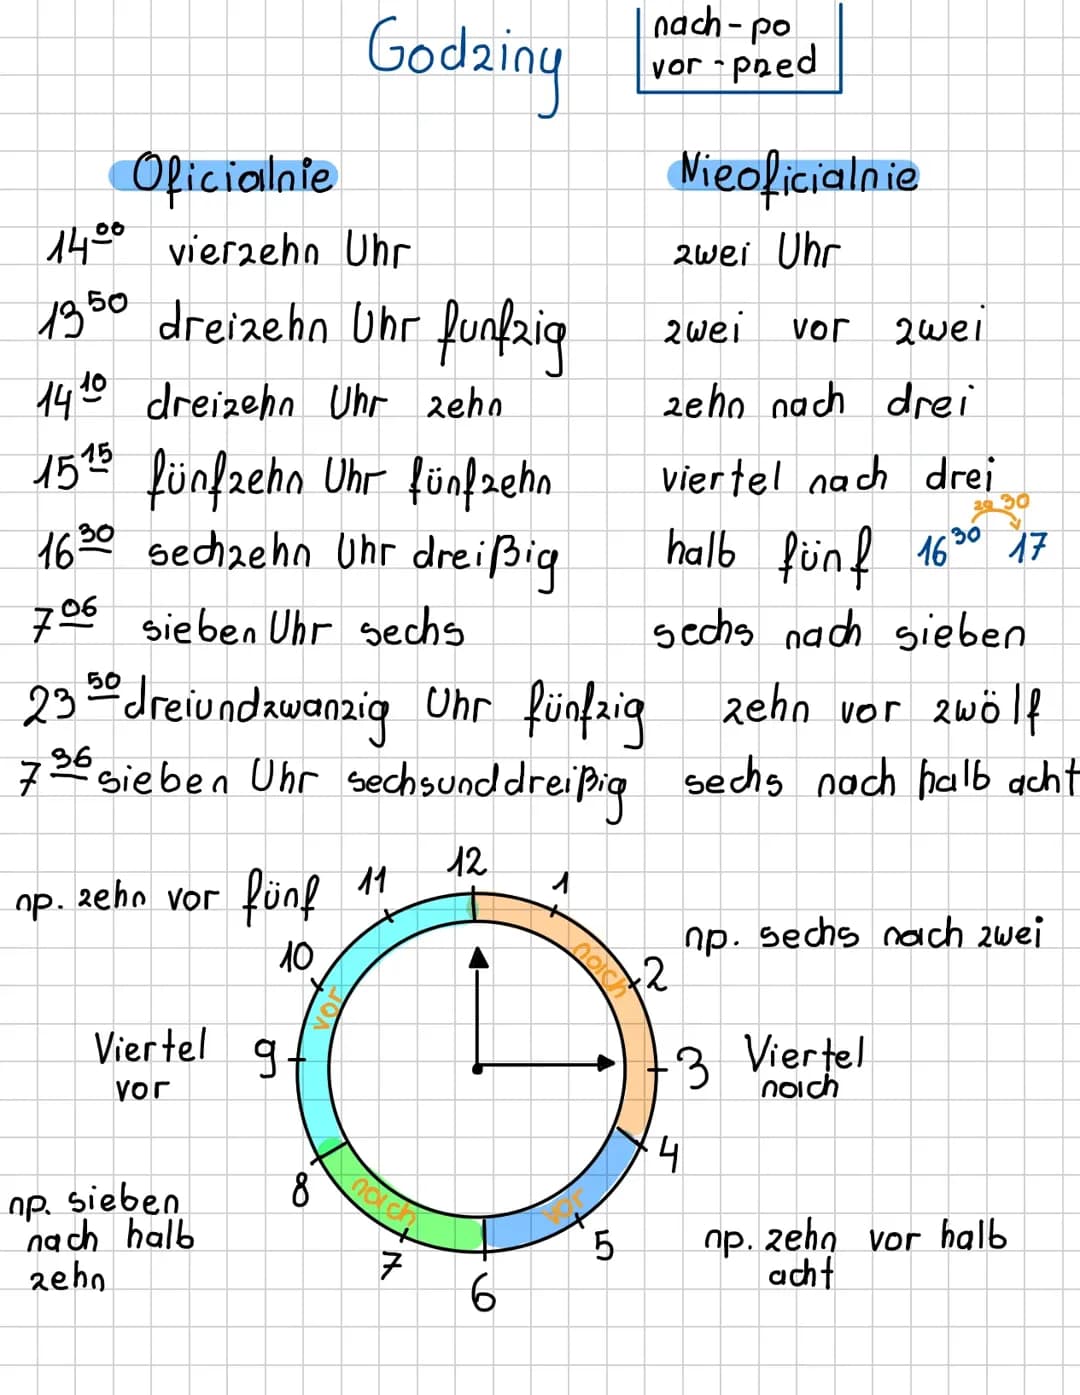 Godziny
nach - po
vor - przed
Oficialnie
Nieoficialnie
14⁰⁰ vierzehn Uhr zwei Uhr
13⁵⁰ dreizehn Uhr funfzig zwei vor zwei
14¹⁰ dreizehn Uhr zehn zehn nach drei
15¹⁵ fünfzehn Uhr fünfzehn viertel nach drei
16³⁰ sechzehn Uhr dreißig halb fünf 16³⁰ 17
za 30
7⁰⁶ sieben Uhr sechs sechs nach sieben
23⁵⁰ dreiundzwanzig Uhr fünfzig zehn vor zwölf
7³⁶ sieben Uhr sechsunddreißig sechs nach halb acht
np. zehn vor fünf
np. sechs nach zwei
12
1
2
3
4
5
6
7
8
9
10
11
nach
vor
nach
vor
Viertel
vor
Viertel
nach
np. sieben
nach halb
zehn
np. zehn vor halb
acht